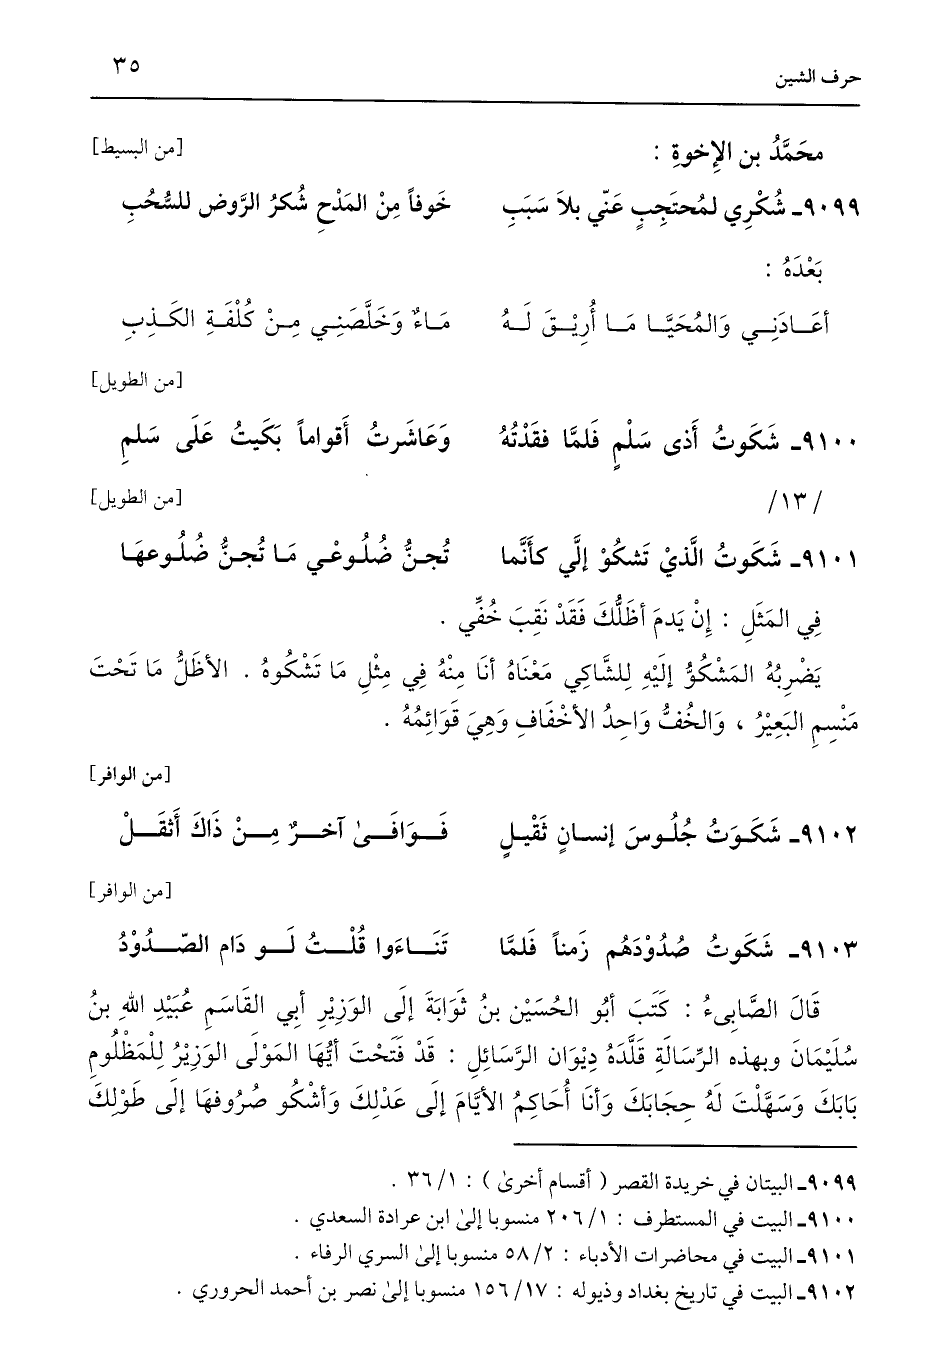 حرف الشين ٣٥
محَمَّدُ بن الإِخوةِ : [من البسيط]
٩٠٩٩ـ شُكْرِي لمُحتَجِبٍ عَنّي بلاَ سَبَبِ خَوفاً مِنْ المَدْحِ شُكرُ الرَّوض للسُّحُبِ
بَعْدَهُ :
أعَـادَنِـي وَالمُحَيَّـا مَـا أُرِيْـقَ لَـهُ مَـاءٌ وَخَلَّصَنِـي مِـنْ كُلْفَـةِ الكَـذِبِ
[من الطويل]
٩١٠٠ـ شَكَوتُ أَذى سَلْمٍ فَلمَّا فقَدْتُهُ وَعَاشَرتُ أَقواماً بَكَيتُ عَلَى سَلمِ
/١٣/ [من الطويل]
٩١٠١ـ شَكَوتُ الَّذيْ تَشكُوْ إلَي كأَنَّما تُجـنُّ ضُلُـوعْـي مَـا تُجـنُّ ضُلُـوعهَـا
فِي المَثَلِ : إِنْ يَدمَ أظَلُّكَ فَقَدْ نَقِبَ خُفِّي .
يَضْرِبُهُ المَشْكُوُّ إلَيْهِ لِلشَّاكِي مَعْنَاهُ أنَا مِنْهُ فِي مِثْلِ مَا تَشْكُوهُ . الأظَلُّ مَا تَحْتَ
مَنْسِمِ البَعِيْرُ ، وَالخُفُّ وَاحِدُ الأخْفَافِ وَهِيَ قَوَائِمُهُ .
[من الوافر]
٩١٠٢ـ شَكَـوَتُ جُلُـوسَ إنسـانٍ ثَقْيـلٍ فَـوَافَـىٰ آخـرٌ مِـنْ ذَاكَ أَثقَـلْ
[من الوافر]
٩١٠٣ـ شَكَوتُ صُدُوْدَهُم زَمناً فَلمَّا تَنَـاءَوا قُلْـتُ لَـو دَام الصّـدُوْدُ
قَالَ الصَّابِىءُ : كَتَبَ أبُو الحُسَيْن بنُ ثَوَابَةَ إلَى الوَزِيْرِ أبِي القَاسَمِ عُبَيْدِ اللهِ بنُ
سُلَيْمَانَ وبهذه الرِّسَالَةِ قَلَّدَهُ دِيْوَان الرَّسَائِلِ : قَدْ فَتَحْتَ أيُّهَا المَوْلَى الوَزِيْرُ لِلْمَظْلُومِ
بَابَكَ وَسَهَّلْتَ لَهُ حِجَابَكَ وَأنَا أُحَاكِمُ الأيَّامَ إلَى عَدْلِكَ وَأشْكُو صُرُوفهَا إلَى طَوْلِكَ
٩٠٩٩ـ البيتان في خريدة القصر ( أقسام أخرىٰ ) : ٣٦/١ .
٩١٠٠ـ البيت في المستطرف : ٢٠٦/١ منسوبا إلىٰ ابن عرادة السعدي .
٩١٠١ـ البيت في محاضرات الأدباء : ٥٨/٢ منسوبا إلىٰ السري الرفاء .
٩١٠٢ـ البيت في تاريخ بغداد وذيوله : ١٥٦/١٧ منسوبا إلىٰ نصر بن أحمد الحروري .